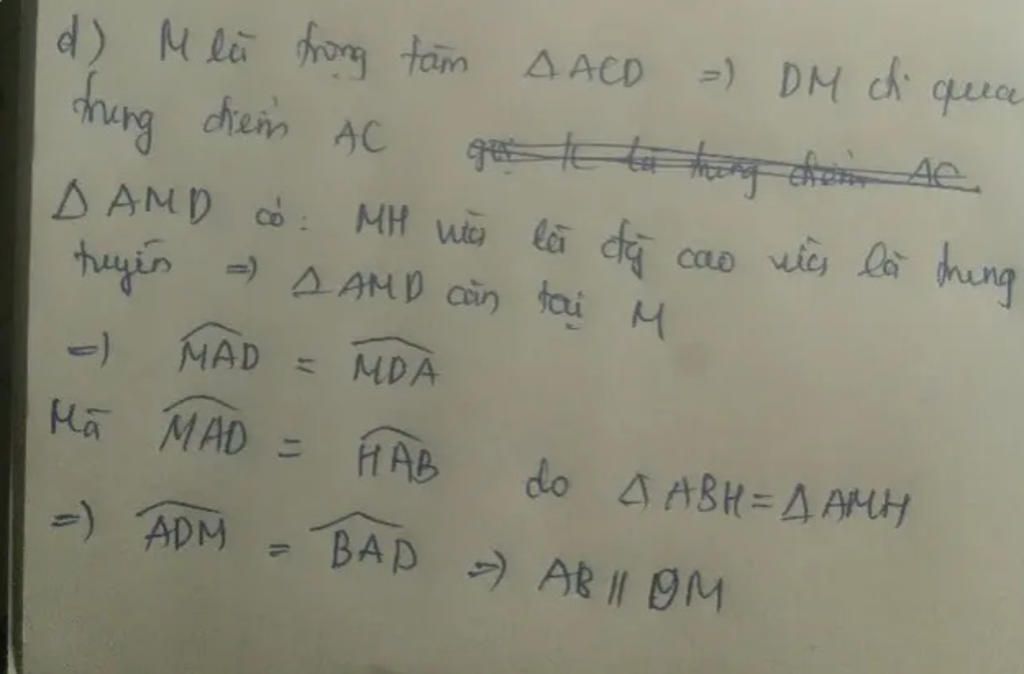 d) M là trọng tâm Δ ACD => DM đi qua
trung điểm AC gọi K là trung điểm AC
Δ AMD có: MH vừa là đg cao vừa là trung
tuyến => Δ AMD cân tại M
=> \widehat{MAD} = \widehat{MDA}
Mà \widehat{MAD} = \widehat{HAB} do Δ ABH = Δ AMH
=> \widehat{ADM} = \widehat{BAD} => AB // DM